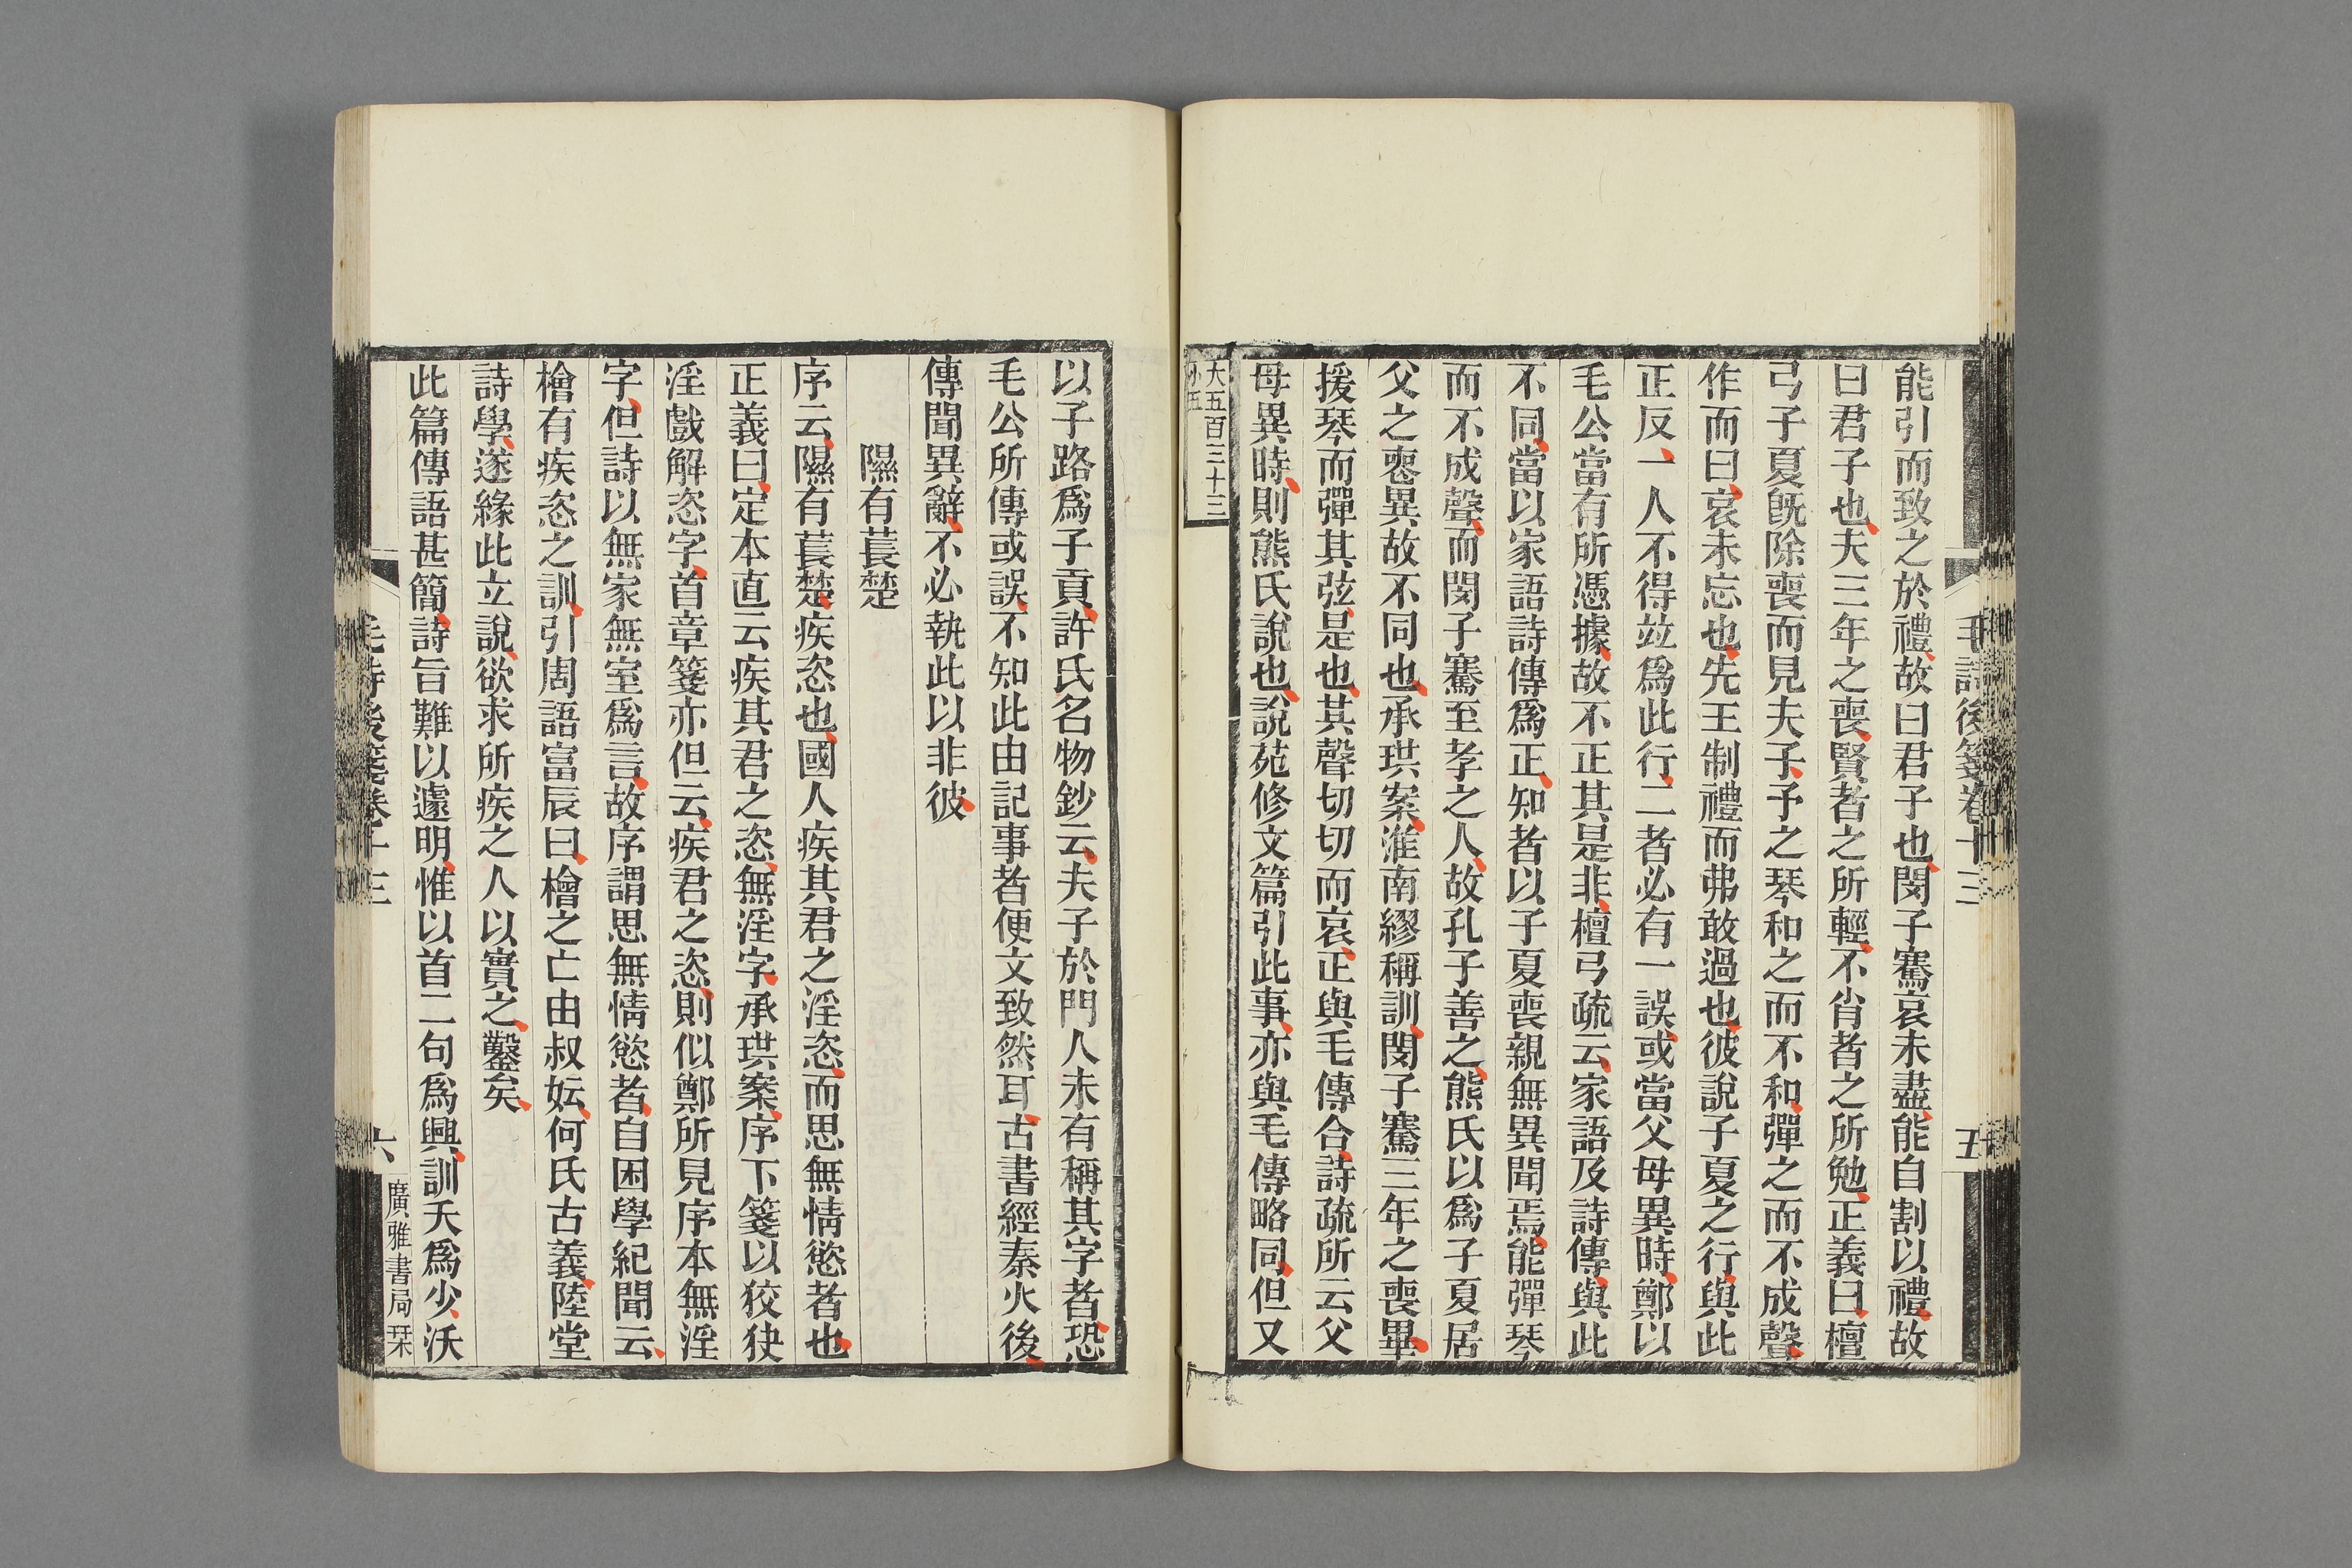 毛詩後箋卷十三
五
能引而致之於禮故曰君子也閔子騫哀未盡能自割以禮故
曰君子也夫三年之喪賢者之所輕不肖者之所勉正義曰檀
弓子夏旣除喪而見夫子予之琴和之而不和彈之而不成聲
作而曰哀未忘也先王制禮而弗敢過也彼說子夏之行與此
正反一人不得竝爲此行二者必有一誤或當父母異時鄭以
毛公當有所憑據故不正其是非檀弓疏云家語及詩傳與此
不同當以家語詩傳爲正知者以子夏喪親無異聞焉能彈琴
而不成聲而閔子騫至孝之人故孔子善之熊氏以爲子夏居
父之喪異故不同也承珙案淮南繆稱訓閔子騫三年之喪畢
援琴而彈其弦是也其聲切切而哀正與毛傳合詩疏所云父
母異時則熊氏說也說苑修文篇引此事亦與毛傳略同但又
大五百三十三
小五
以子路爲子貢許氏名物鈔云夫子於門人未有稱其字者恐
毛公所傳或誤不知此由記事者便文致然耳古書經秦火後
傳聞異辭不必執此以非彼
隰有萇楚
序云隰有萇楚疾恣也國人疾其君之淫恣而思無情慾者也
正義曰定本直云疾其君之恣無淫字承珙案序下箋以狡狭
淫戲解恣字首章箋亦但云疾君之恣則似鄭所見序本無淫
字但詩以無家無室爲言故序謂思無情慾者自困學紀聞云
檜有疾恣之訓引周語富辰曰檜之亡由叔妘何氏古義陸堂
詩學遂緣此立說欲求所疾之人以實之鑿矣
此篇傳語甚簡詩旨難以遽明惟以首二句爲興訓夭爲少沃
毛詩後箋卷十三
六
廣雅書局栞